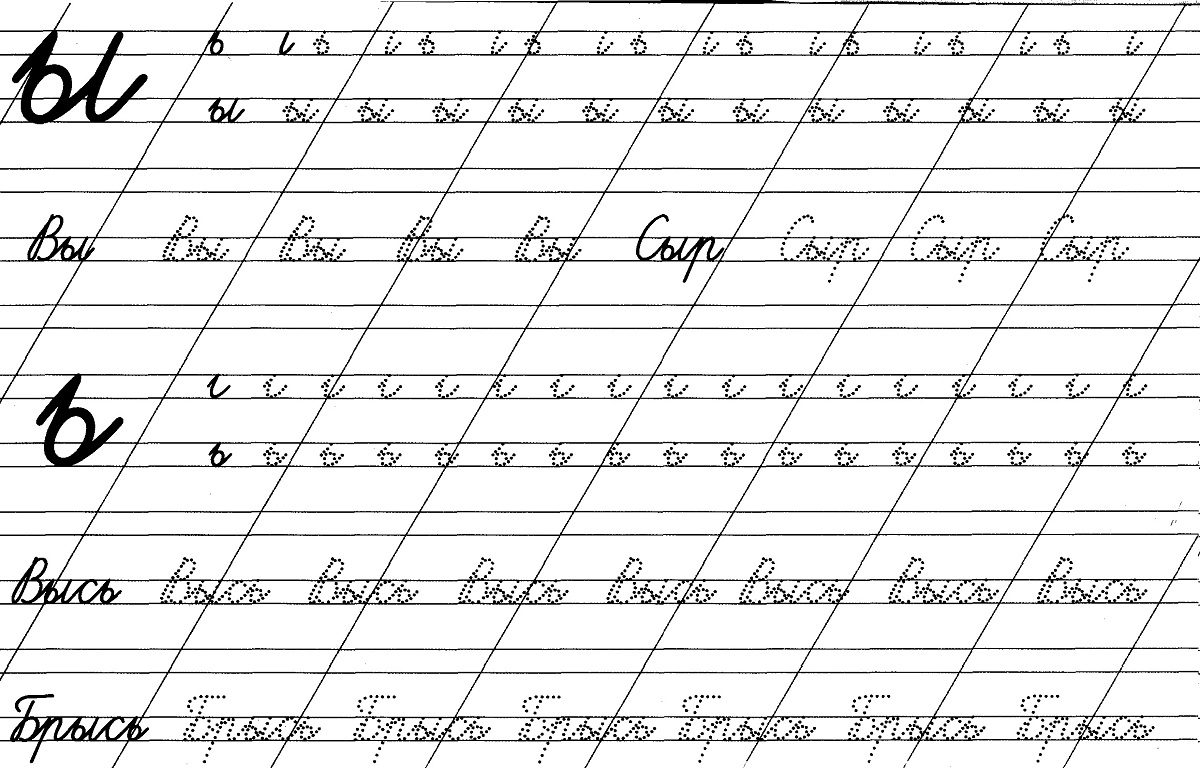 ы
ь ı ь ı ь ı ь ı ь ı ь ı ь ı ь ı ь ı
ы ы ы ы ы ы ы ы ы ы ы ы ы
Вы Вы Вы Вы Вы Сыр Сыр Сыр Сыр
ь
ı ı ı ı ı ı ı ı ı ı ı ı ı ı ı ı ı
ь ь ь ь ь ь ь ь ь ь ь ь ь ь ь ь ь
Высь Высь Высь Высь Высь Высь Высь Высь
Брысь Брысь Брысь Брысь Брысь Брысь Брысь